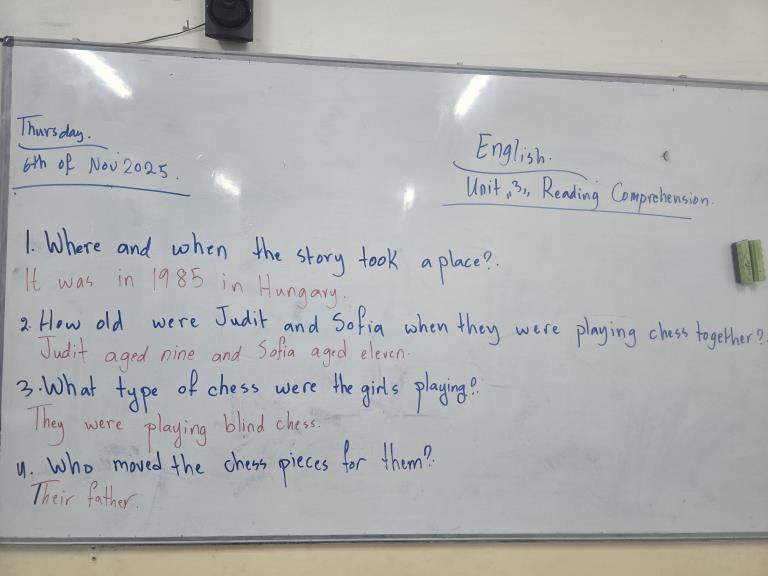 Thursday.
6th of Nov 2025.
English.
Unit "3" Reading Comprehension.
1. Where and when the story took a place?
It was in 1985 in Hungary.
2. How old were Judit and Sofia when they were playing chess together?
Judit aged nine and Sofia aged eleven.
3. What type of chess were the girls playing?
They were playing blind chess.
4. Who moved the chess pieces for them?
Their father.